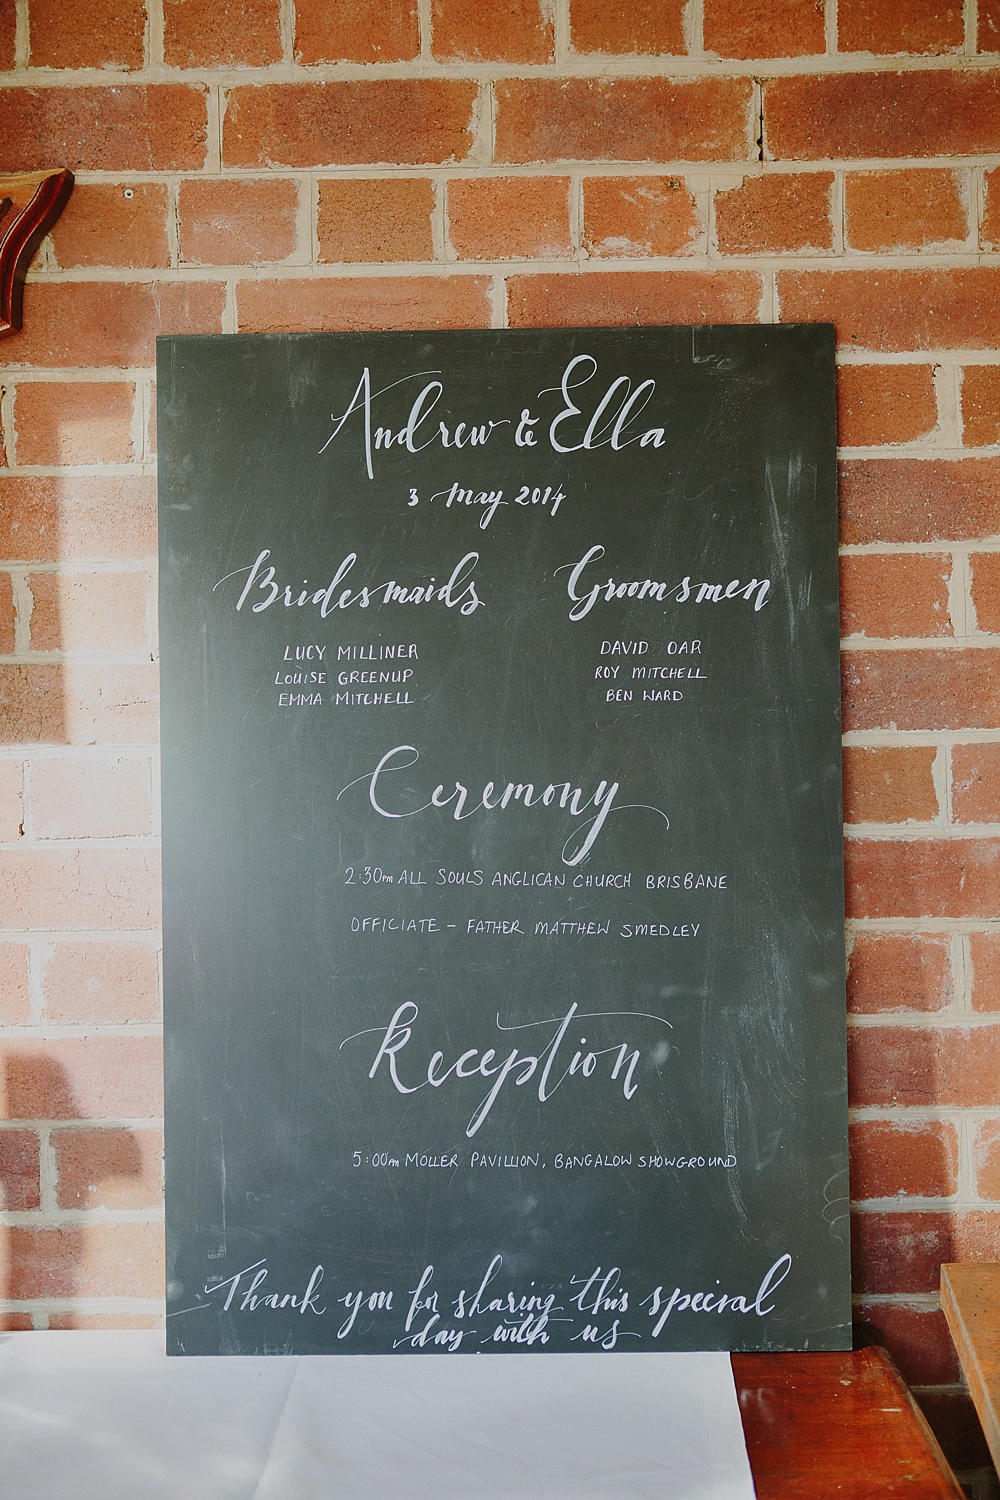 Andrew & Ella
3 May 2014
Bridesmaids
LUCY MILLINER
LOUISE GREENUP
EMMA MITCHELL
Groomsmen
DAVID OAR
ROY MITCHELL
BEN WARD
Ceremony
2:30pm ALL SOULS ANGLICAN CHURCH BRISBANE
OFFICIATE - FATHER MATTHEW SMEDLEY
Reception
5:00pm MOLLER PAVILLION, BANGALOW SHOWGROUND
Thank you for sharing this special
day with us